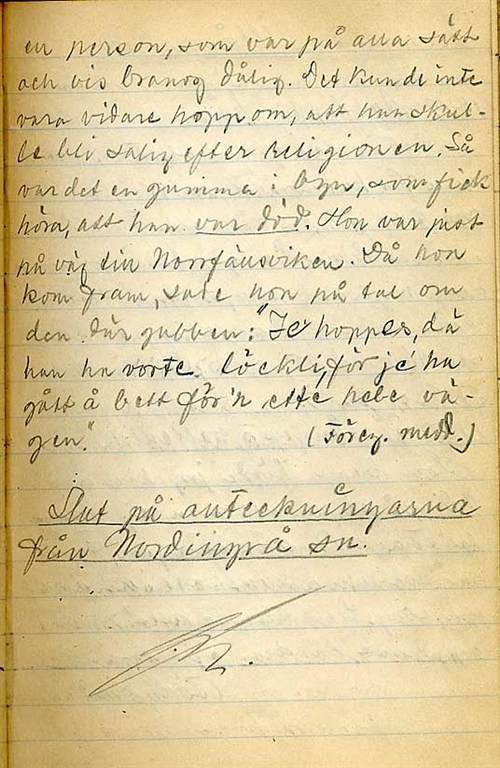 en person, som var på alla sätt
och vis branog dålig. Det kunde inte
vara vidare hopp om, att han skul-
le bli salig efter religionen. Så
var det en gumma i byn, som fick
höra, att han var död. Hon var just
på väg till Norrfällsviken. Då hon
kom fram, sade hon på tal om
den där gubben: "Je hoppes, dä
han ha vorte löckli, för je ha
gått å bett för'n ette hele vä-
gen."
(Föreg. medd.)
Slut på anteckningarna
från Nordingrå sn.